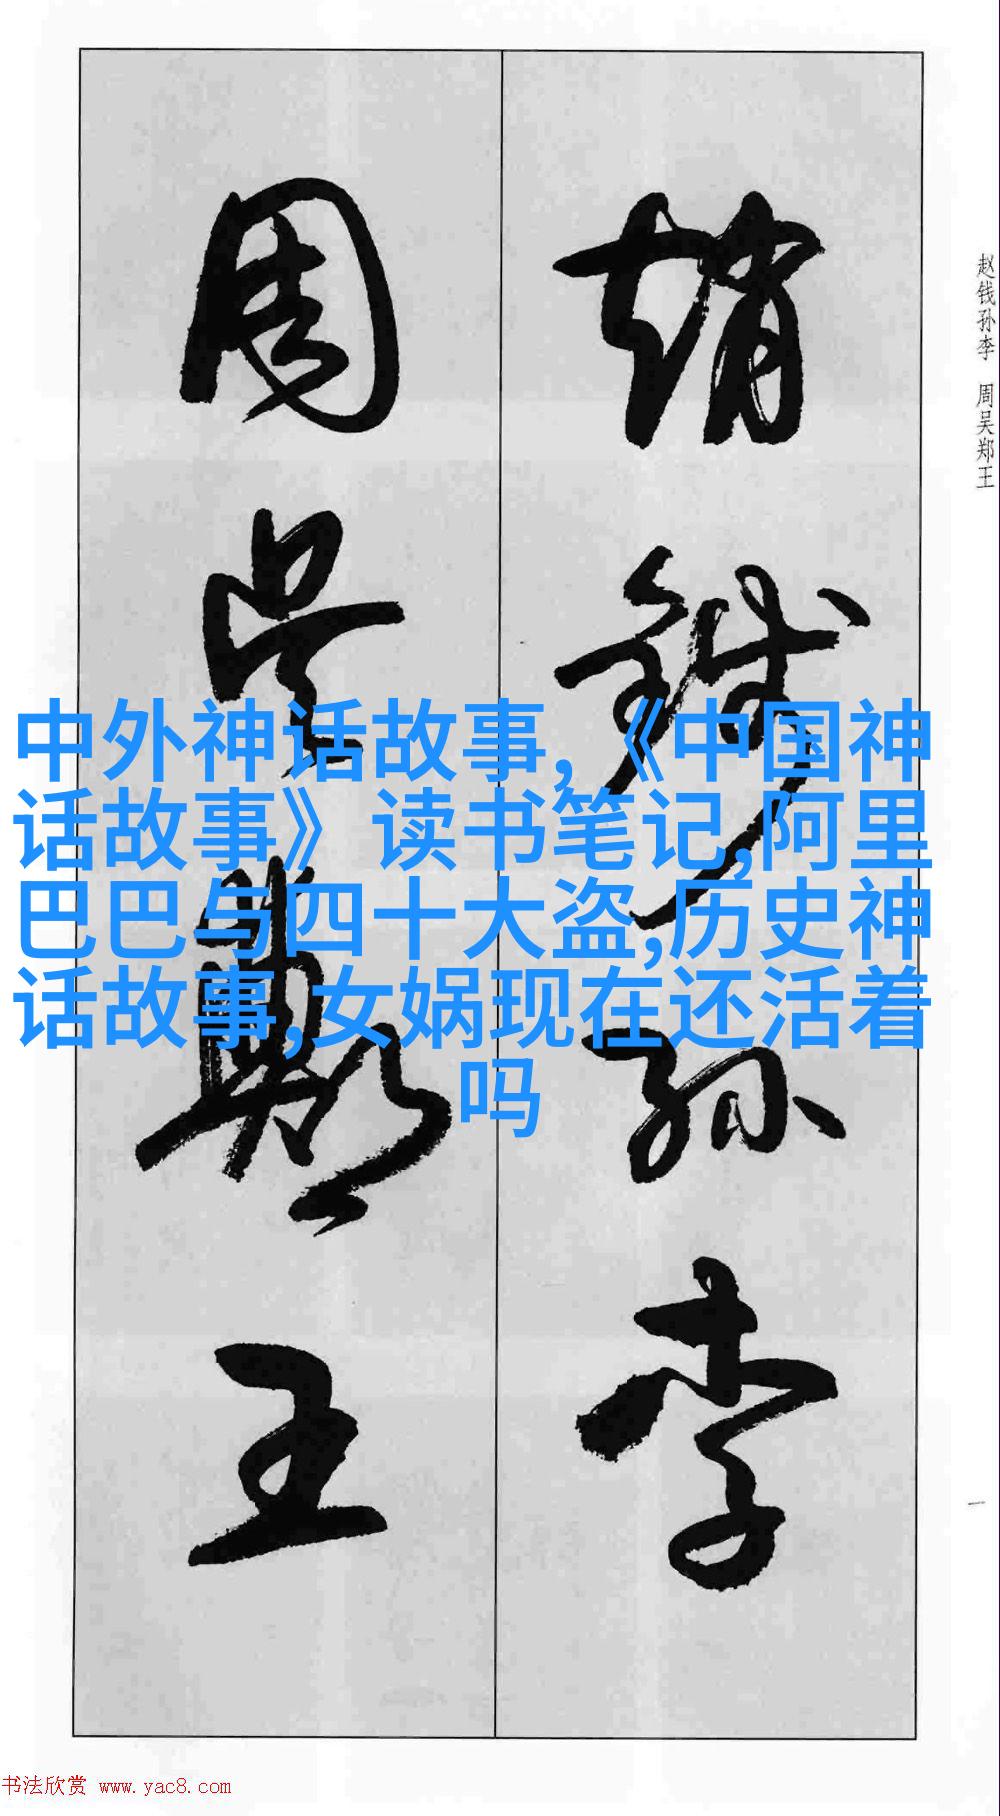 趙錢孫李
周吳鄭王
赵钱孙李 周吴郑王
中外神话故事,《中国神
话故事》读书笔记,阿里
巴巴与四十大盗,历史神
话故事,女娲现在还活着
吗
一
书法欣赏 www.yac8.com